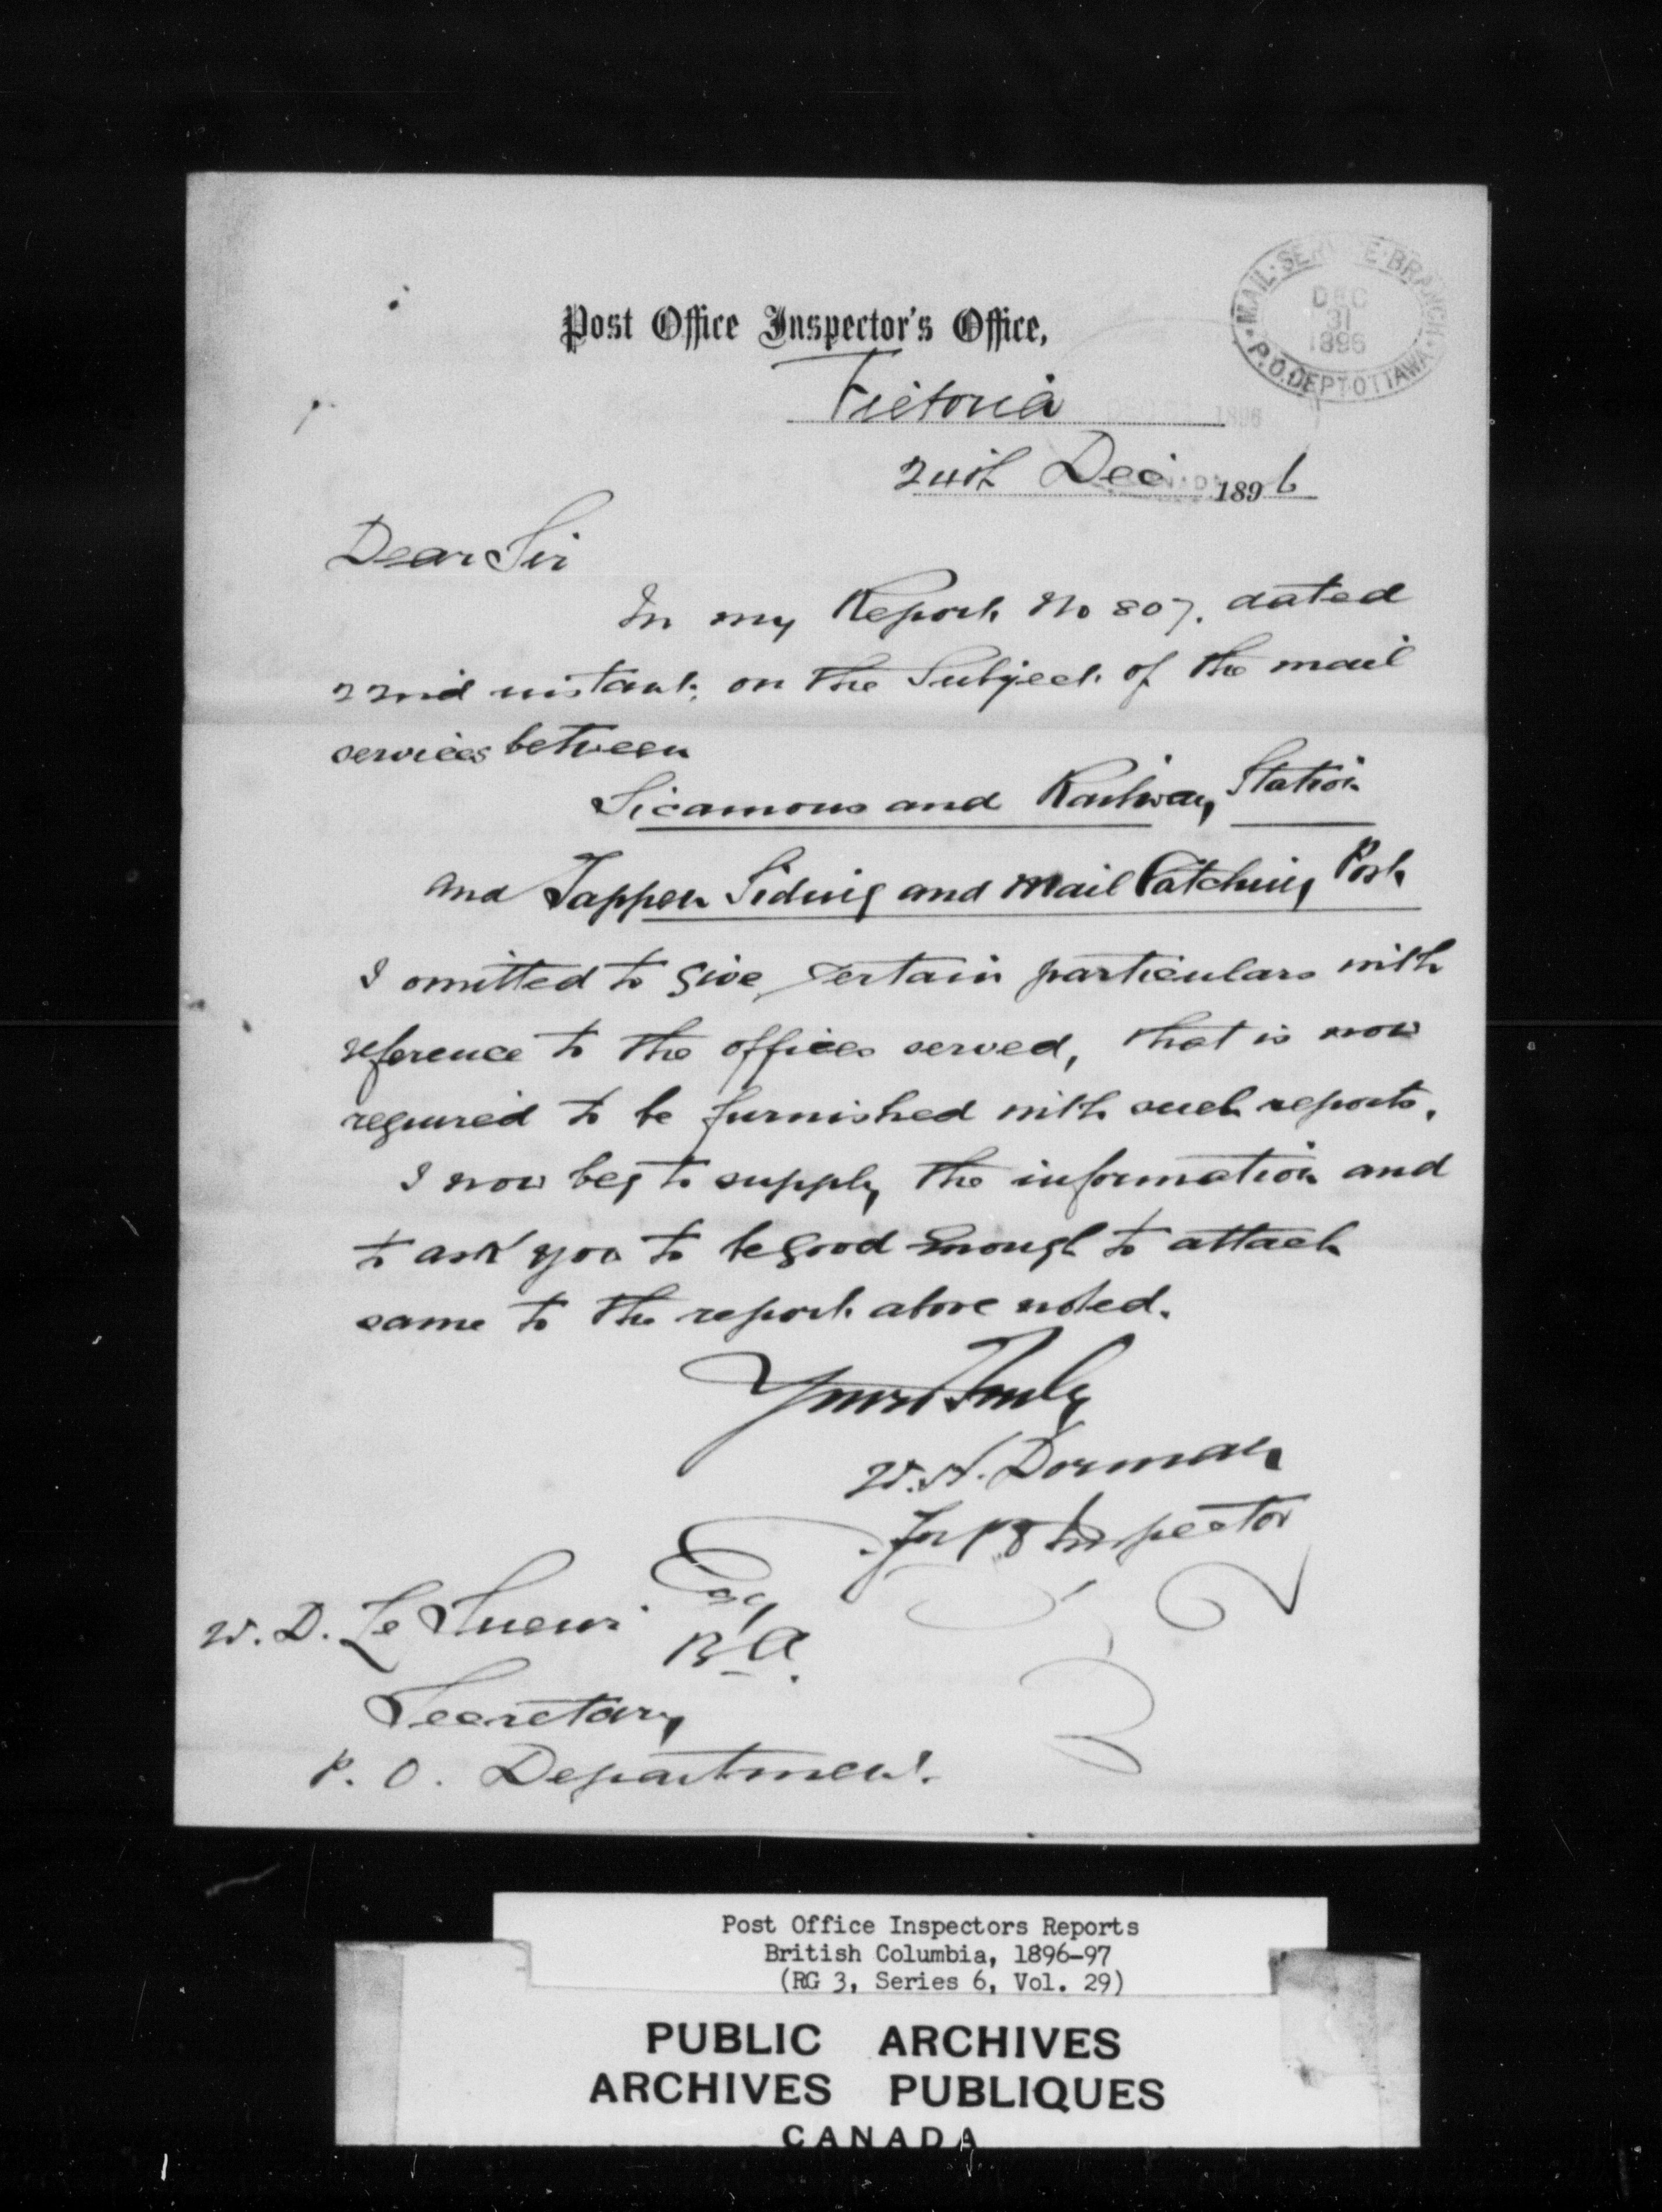 MAIL·SERVICE·BRANCH·
DEC
31
1896
P.O.DEPT OTTAWA
Post Office Inspector's Office,
Victoria
24th Dec 1896
Dear Sir
In my Report No 807. dated
22nd instant, on the Subject of the mail
services between
Sicamous and Railway Station
and Tappen Siding and Mail Catching Post
I omitted to give certain particulars with
reference to the offices served, that is now
required to be furnished with such reports.
I now beg to supply the information and
to ask you to be good enough to attach
same to the report above noted.
Yours truly
W.H. Dorman
for P O Inspector
W. D. Le Sueur Esq
B A.
Secretary
P. O. Department.
Post Office Inspectors Reports
British Columbia, 1896-97
(RG 3, Series 6, Vol. 29)
PUBLIC ARCHIVES
ARCHIVES PUBLIQUES
CANADA